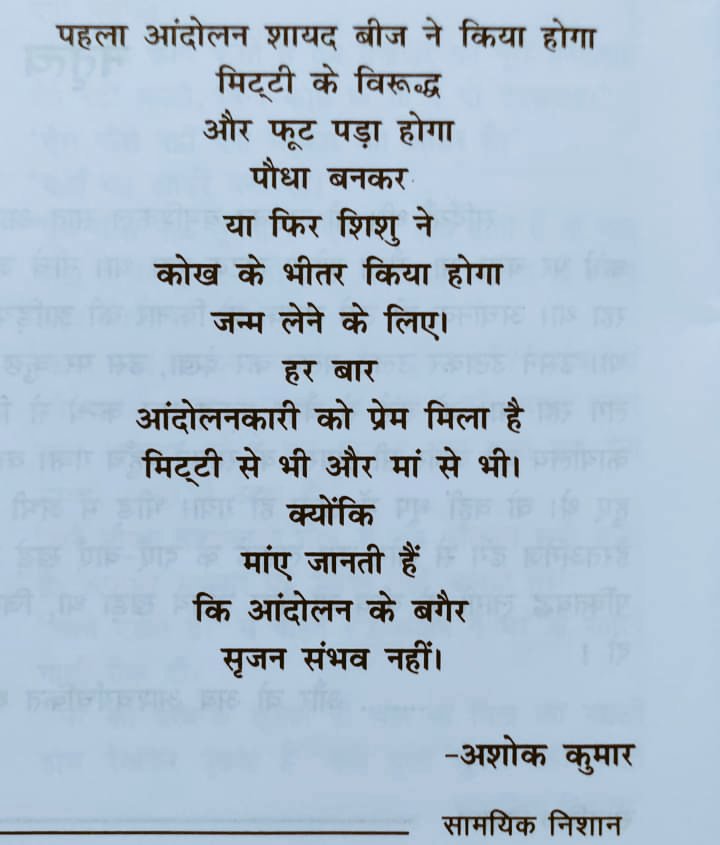 पहला आंदोलन शायद बीज ने किया होगा
मिट्टी के विरूद्ध
और फूट पड़ा होगा
पौधा बनकर
या फिर शिशु ने
कोख के भीतर किया होगा
जन्म लेने के लिए।
हर बार
आंदोलनकारी को प्रेम मिला है
मिट्टी से भी और मां से भी।
क्योंकि
मांए जानती हैं
कि आंदोलन के बगैर
सृजन संभव नहीं।
-अशोक कुमार
सामयिक निशान